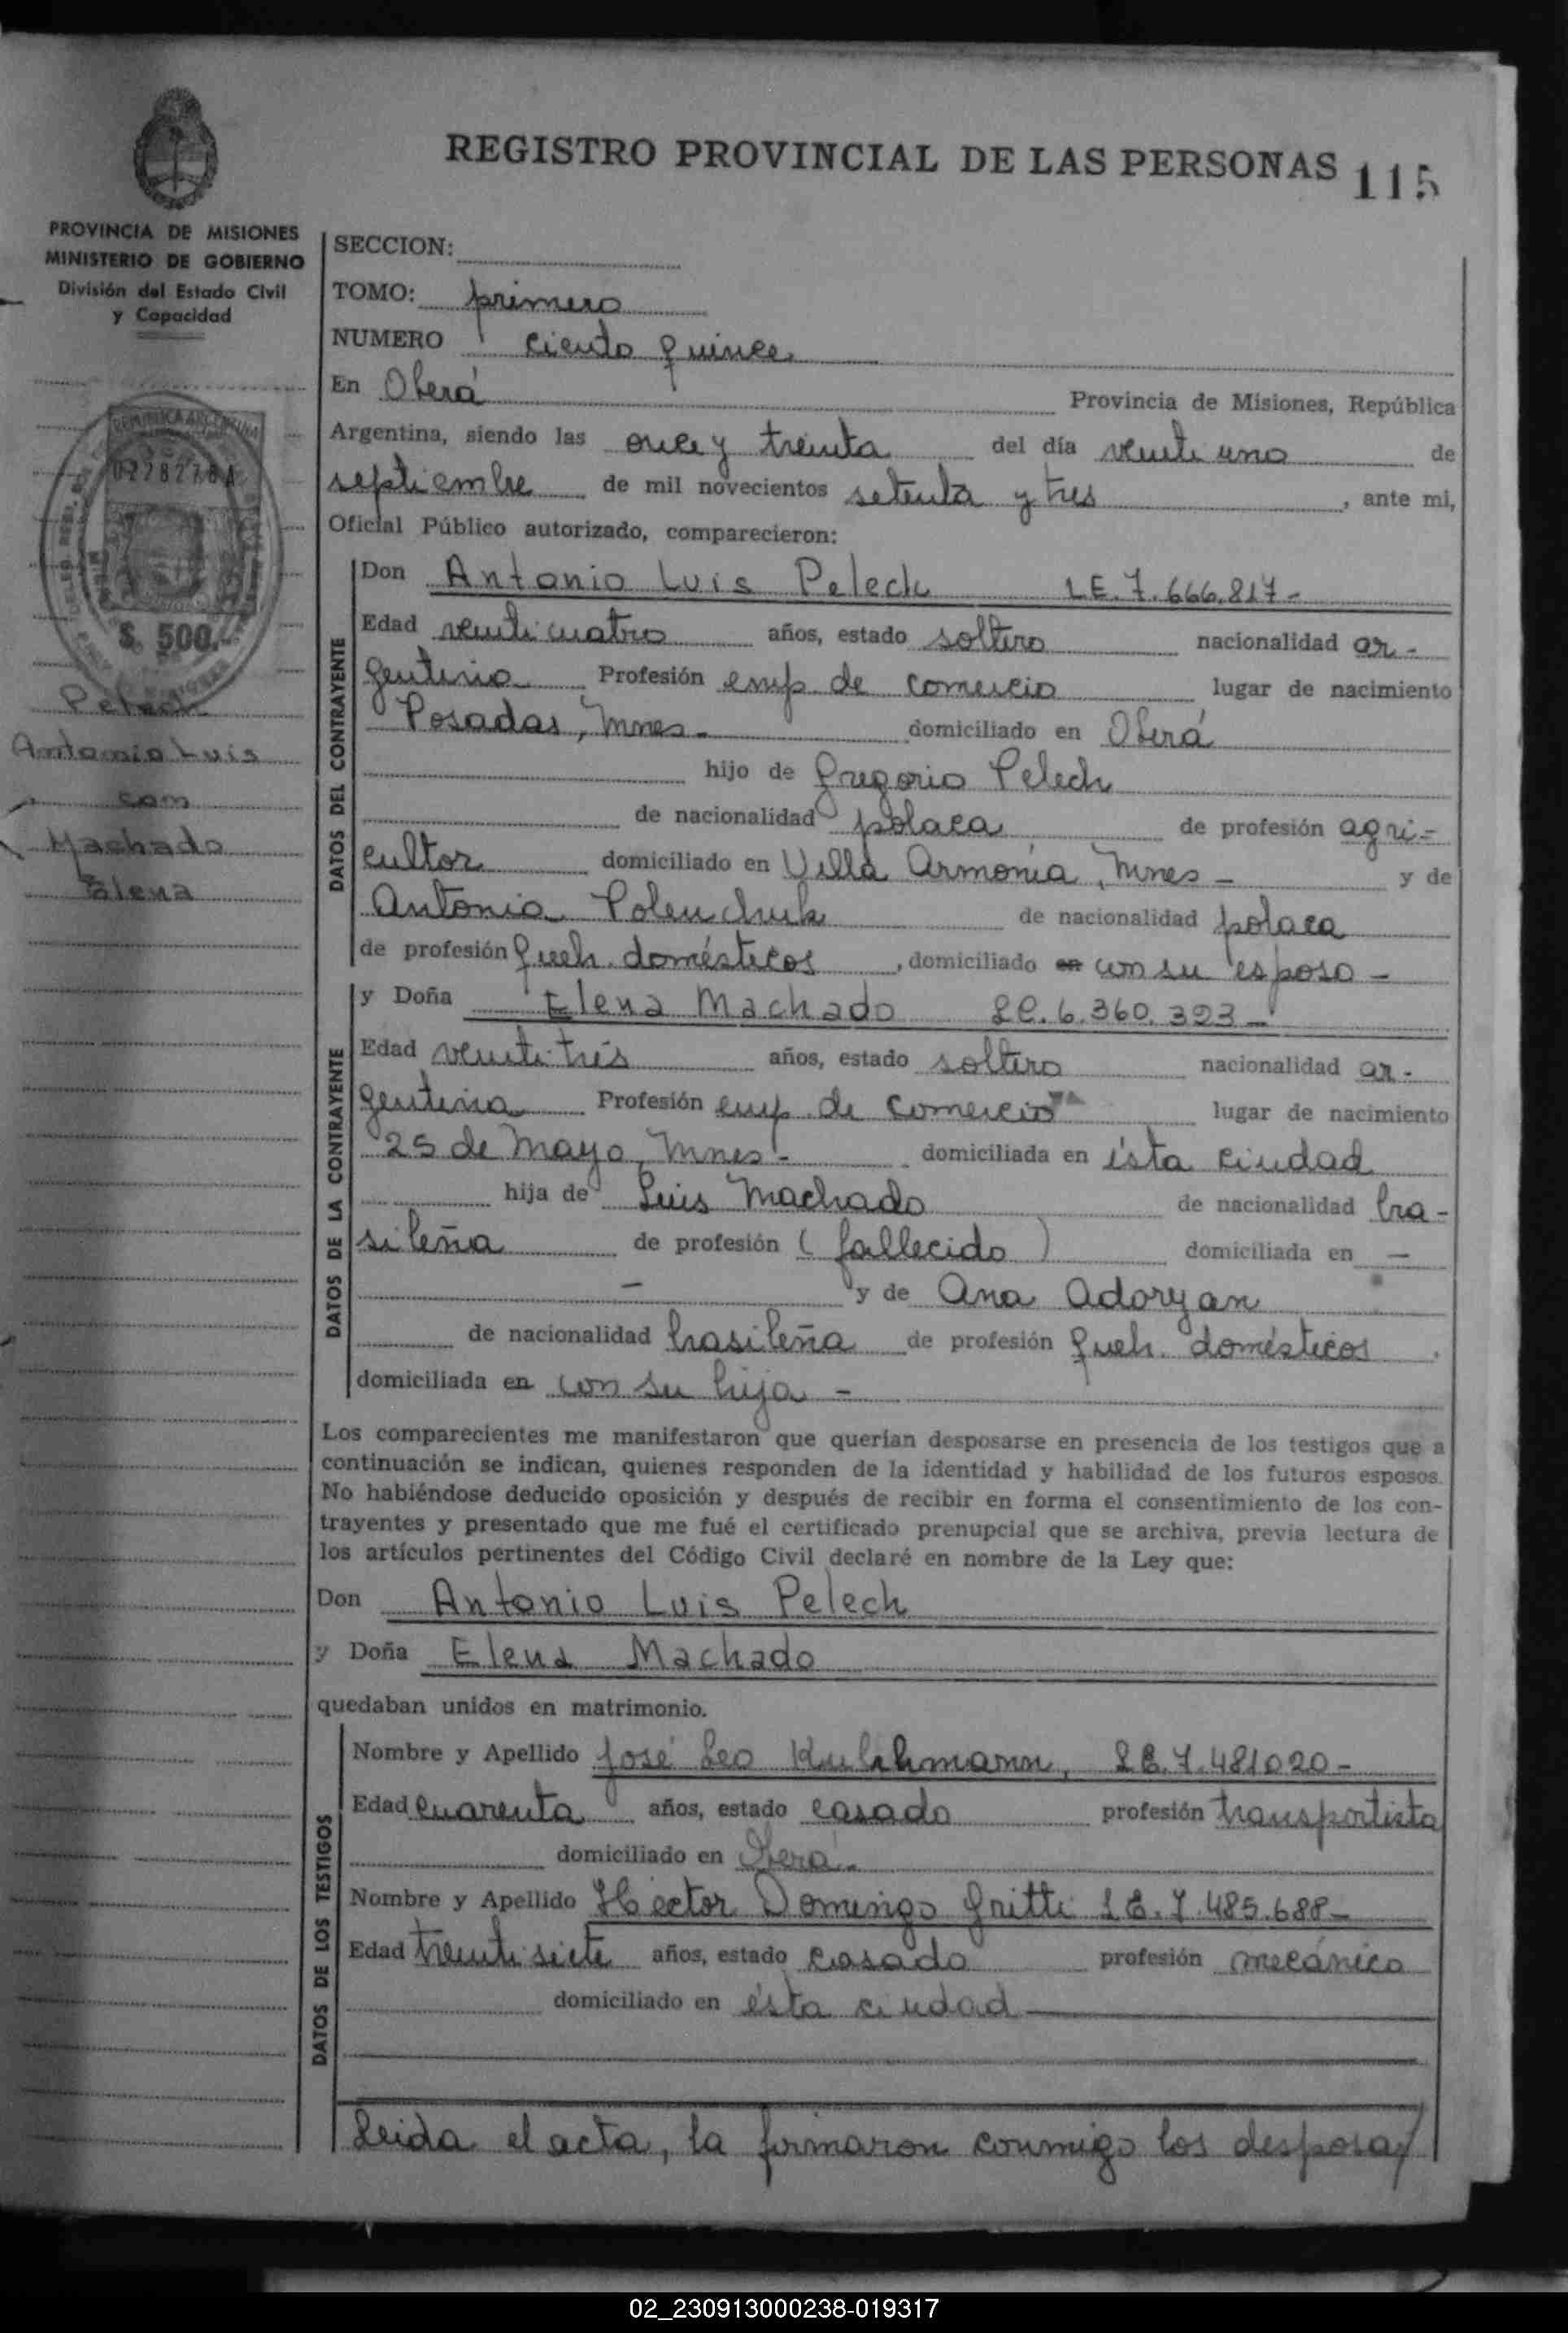 REGISTRO PROVINCIAL DE LAS PERSONAS 115
PROVINCIA DE MISIONES
MINISTERIO DE GOBIERNO
División del Estado Civil
y Capacidad
REPUBLICA ARGENTINA
$. 500.-
Pelech
Antonio Luis
con
Machado
Elena
SECCION:
TOMO: primero
NUMERO ciento quince
En Oberá Provincia de Misiones, República
Argentina, siendo las once y treinta del día veinti uno de
septiembre de mil novecientos setenta y tres, ante mi,
Oficial Público autorizado, comparecieron:
DATOS DEL CONTRAYENTE
Don Antonio Luis Pelech LE. 7.666.817-
Edad veinticuatro años, estado soltero nacionalidad ar-
gentina Profesión emp. de comercio lugar de nacimiento
Posadas, Mnes- domiciliado en Oberá
hijo de Gregorio Pelech
de nacionalidad polaca de profesión agri-
cultor domiciliado en Villa Armonía, Mnes- y de
Antonia Polenchuk de nacionalidad polaca
de profesión queh. domésticos, domiciliado en con su esposo-
DATOS DE LA CONTRAYENTE
y Doña Elena Machado LC. 6.360.323-
Edad veinti trés años, estado soltera nacionalidad ar-
gentina Profesión emp. de comercio lugar de nacimiento
25 de Mayo, Mnes- domiciliada en ésta ciudad
hija de Luis Machado de nacionalidad bra-
sileña de profesión (fallecido) domiciliada en -
- y de Ana Adoryan
de nacionalidad brasileña de profesión queh. domésticos,
domiciliada en con su hija -
Los comparecientes me manifestaron que querían desposarse en presencia de los testigos que a
continuación se indican, quienes responden de la identidad y habilidad de los futuros esposos.
No habiéndose deducido oposición y después de recibir en forma el consentimiento de los con-
trayentes y presentado que me fué el certificado prenupcial que se archiva, previa lectura de
los artículos pertinentes del Código Civil declaré en nombre de la Ley que:
Don Antonio Luis Pelech
y Doña Elena Machado
quedaban unidos en matrimonio.
DATOS DE LOS TESTIGOS
Nombre y Apellido José Leo Kuhlmann, LE. 7.481020-
Edad cuarenta años, estado casado profesión transportista
domiciliado en Oberá-
Nombre y Apellido Héctor Domingo Gritti LE. 7.485.688-
Edad treinti siete años, estado casado profesión mecánico
domiciliado en ésta ciudad
Leida el acta, la firmaron conmigo los desposa/
02_230913000238-019317